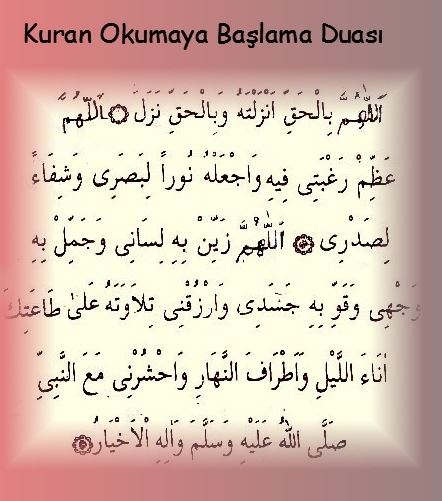 Kuran Okumaya Başlama Duası
اَللّٰهُمَّ بِالْحَقِّ اَنْزَلْتَهُ وَبِالْحَقِّ نَزَلَ ۞ اَللّٰهُمَّ
عَظِّمْ رَغْبَتِى فِيهِ وَاجْعَلْهُ نُوراً لِبَصَرِى وَشِفَاءً
لِصَدْرِى ۞ اَللّٰهُمَّ زَيِّنْ بِهِ لِسَانِى وَجَمِّلْ بِهِ
وَجْهِى وَقَوِّ بِهِ جَسَدِى وَارْزُقْنِى تِلَاوَتَهُ عَلَى طَاعَتِكَ
اٰنَاءَ اللَّيْلِ وَاَطْرَافَ النَّهَارِ وَاحْشُرْنِى مَعَ النَّبِىِّ
صَلَّى اللّٰهُ عَلَيْهِ وَسَلَّمَ وَاٰلِهِ الْاَخْيَارِ ۞